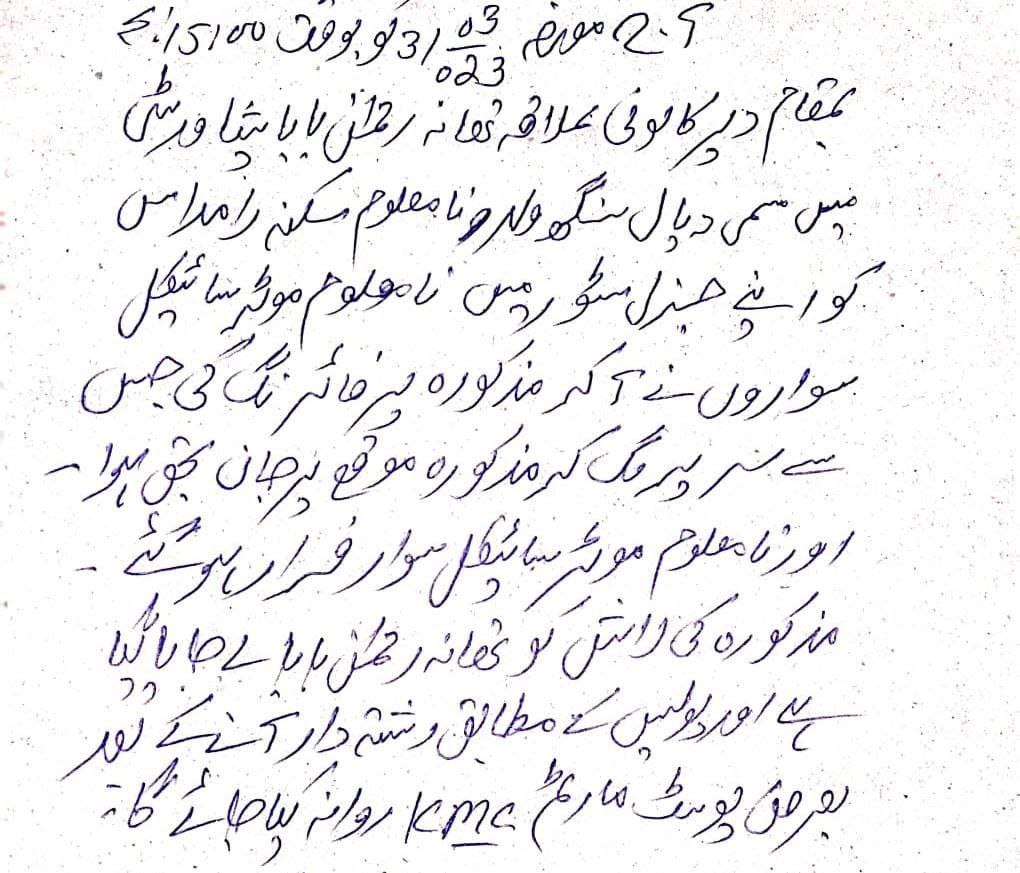 مورخہ 31/03/023 کو بوقت 15:00 بجے
بمقام دیر کالونی علاقہ تھانہ رحمٰن بابا پشاور سٹی
میں مسمی دیال سنگھ ولد نامعلوم سکنہ رامداس
کو اپنے جنرل سٹور میں نامعلوم موٹر سائیکل
سواروں نے آکر مذکورہ پر فائرنگ کی جس
سے سر پر لگ کر مذکورہ موقع پر جان بحق ہوا۔
اور نامعلوم موٹر سائیکل سوار فرار ہوگئے۔
مذکورہ کی لاش کو تھانہ رحمٰن بابا لے جایا گیا
ہے اور پولیس کے مطابق رشتہ دار آنے کے بعد
بغرض پوسٹ مارٹم KMC روانہ کیا جائے گا۔